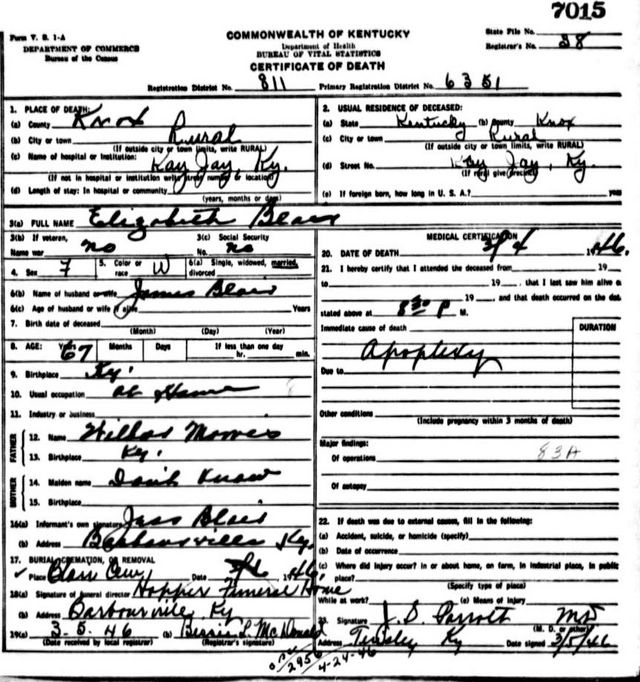 7015
Form V. S. 1-A
DEPARTMENT OF COMMERCE
Bureau of the Census
COMMONWEALTH OF KENTUCKY
Department of Health
BUREAU OF VITAL STATISTICS
CERTIFICATE OF DEATH
State File No.
Registrar's No. 38
Registration District No. 811 Primary Registration District No. 6351
1. PLACE OF DEATH:
(a) County Knox
(b) City or town Rural
(If outside city or town limits, write RURAL)
(c) Name of hospital or institution:
Kay Jay, Ky.
(If not in hospital or institution write street number or location)
(d) Length of stay: In hospital or community
(years, months or days)
2. USUAL RESIDENCE OF DECEASED:
(a) State Kentucky (b) County Knox
(c) City or town Rural
(If outside city or town limits, write RURAL)
(d) Street No. Kay Jay, Ky.
(If rural give precinct)
(e) If foreign born, how long in U. S. A.? years
3(a) FULL NAME Elizabeth Blair
3(b) If veteran,
Name war no
3(c) Social Security
No. no
4. Sex F
5. Color or
race W
6(a) Single, widowed, married,
divorced
6(b) Name of husband or wife James Blair
6(c) Age of husband or wife if alive Years
7. Birth date of deceased
(Month) (Day) (Year)
8. AGE: Years 67 Months Days If less than one day
hr. min.
9. Birthplace Ky.
10. Usual occupation at Home
11. Industry or business
FATHER
12. Name
13. Birthplace Ky.
MOTHER
14. Maiden name Don't Know
15. Birthplace
16(a) Informant's own signature Jass Blair
(b) Address Ky.
17. BURIAL, CREMATION, OR REMOVAL
Place Cem Date 3/6 1946
18(a) Signature of funeral director Hopper Funeral Home
(b) Address Barbourville, Ky
19(a) 3-5-46 (b) Bessie L. McDonald
(Date received by local registrar) (Registrar's signature)
MEDICAL CERTIFICATION
20. DATE OF DEATH 3/4 1946
21. I hereby certify that I attended the deceased from 19
to 19 that I last saw him alive on
19 and that death occurred on the date
stated above at 8:30 P M.
Immediate cause of death
DURATION
Apoplexy
Due to
Other conditions
(Include pregnancy within 3 months of death)
Major findings:
Of operations 83A
Of autopsy
22. If death was due to external causes, fill in the following:
(a) Accident, suicide, or homicide (specify)
(b) Date of occurrence
(c) Where did injury occur? in or about home, on farm, in industrial place, in public
place?
(Specify type of place)
While at work? (e) Means of injury
23. Signature J. S. Parrott MD
(M. D. or other)
Address Tinsley Ky Date signed 3/5/46
2956
4-24-46